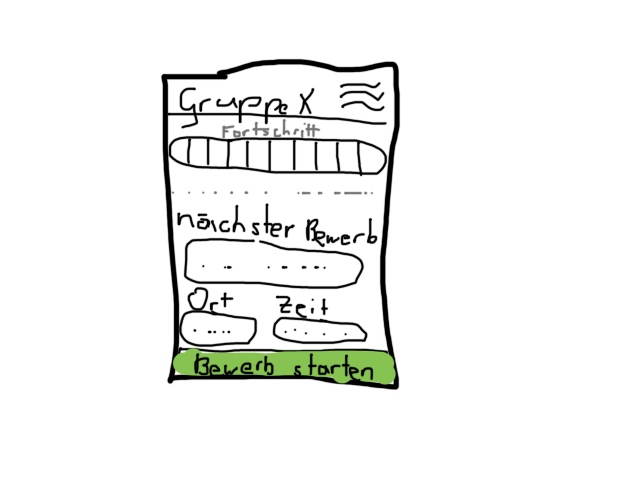 Gruppe X
Fortschritt
nächster Bewerb
Ort Zeit
Bewerb starten